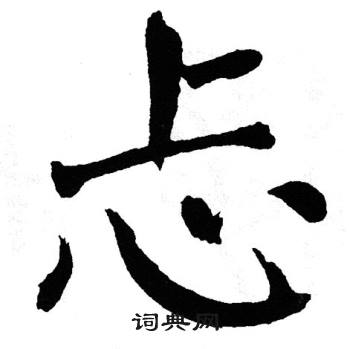 忐
词典网